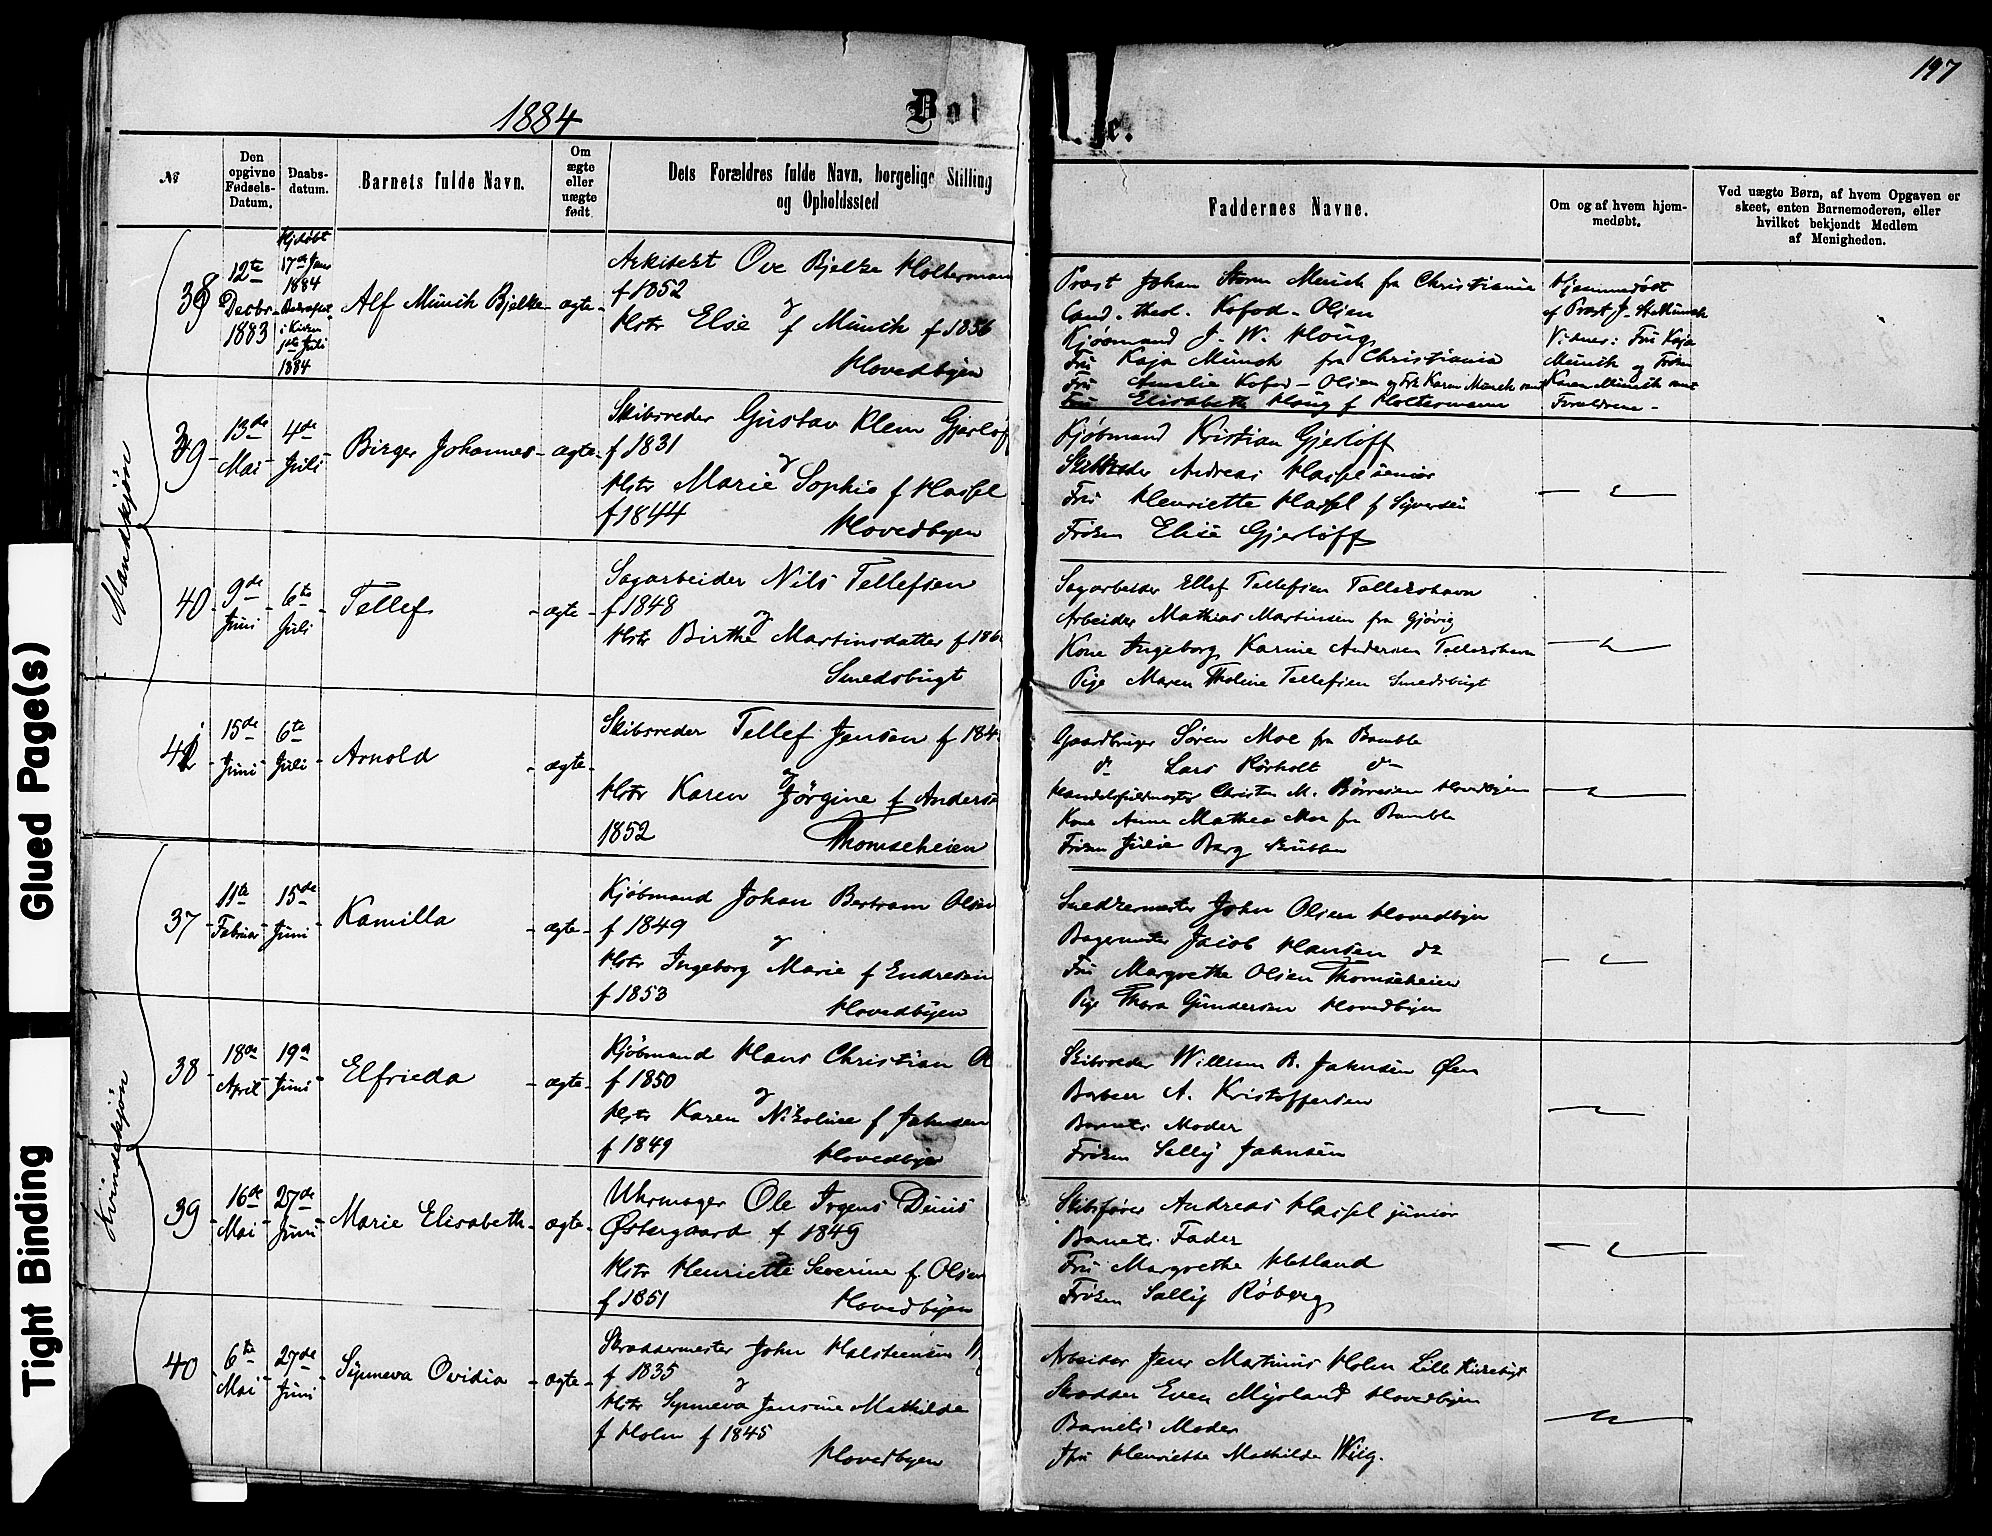 197
1884
Daab
Glued Page(s)
Tight Binding
№
Den opgivne Fødsels-Datum.
Daabs-datum.
Barnets fulde Navn.
Om ægte eller uægte født
Dets Forældres fulde Navn, borgelige Stilling og Opholdssted
Faddernes Navne.
Om og af hvem hjem-
medøbt.
Ved uægte Børn, af hvem Opgaven er
skeet, enten Barnemoderen, eller
hvilket bekjendt Medlem
af Menigheden.
Mandskjøn
38
12te Decbr 1883
Hjdøbt 17de Janr 1884
i Kirken 1ste Juli 1884
Alf Münch Bjelke
ægte
Arkitekt Ove Bjelke Holtermann
f 1852
og
Hstr Else f Münch f 1856
Hovedbyen
Prost Johan Storm Münch fr Christiania
Cand. theol. Kofod-Olsen
Kjøbmand J. W. Houg
Fru Kaja Münch fra Christiania
Fru Amalia Kofod-Olsen og Frk Karen Münch
Fru Elisabeth Houg f Holtermann
Hjemmedøbt
af Prost J. St. Münch
Vidner: Fru Kaja
Münch og Frøken
Karen Münch samt
Forældrene
39
13de Mai
4de Juli
Birger Johannes
ægte
Skibsreder Gustav Klem Gjerløf
f 1831
og
Hstr Marie Sophie f Hassel
f 1844
Hovedbyen
Kjøbmand Kristian Gjerløff
Skibsreder Andreas Hassel senior
Fru Henriette Hassel f Syversen
Frøken Elise Gjerløff
40
9de Juni
6te Juli
Tellef
ægte
Sagarbeider Nils Tellefsen
f 1848
og
Hstr Birthe Martinsdatter f 186
Smedsbugt
Sagarbeider Ellef Tellefsen Tallakshavn
Arbeider Mathias Martinsen fra Gjøvig
Kone Ingeborg Karine Andersen Tallakshavn
Pige Maren Tholine Tellefsen Smedsbugt
41
15de Juni
6te Juli
Arnold
ægte
Skibsreder Tellef Jensen f 184
og
Hstr Karen Jørgine f Anders
1852
Thomseheien
Gaardbruger Søren Moe fra Bamble
do Lars Rørholt do
Handelsfuldmægtig Christen M. Børresen Hovedbyen
Kone Anne Mathea Moe fra Bamble
Frøken Julie Berg Skrubben
Kvindekjøn
37
11te Februar
15de Juni
Kamilla
ægte
Kjøbmand Johan Bertram Olsen
f 1849
og
Hstr Ingeborg Marie f Endresen
f 1853
Hovedbyen
Snedkermester John Olsen Hovedbyen
Bagermester Jacob Hansen do
Fru Margrethe Olsen Thomseheien
Pige Thora Gundersen Hovedbyen
38
18de April
19de Juni
Elfrieda
ægte
Kjøbmand Hans Christian
f 1850
og
Hstr Karen Nikoline f Jahnsen
f 1849
Hovedbyen
Skibsreder Willum B. Jahnsen Øen
Barbeer A. Kristoffersen
Barnets Moder
Frøken Sally Jahnsen
39
16de Mai
27de Juni
Marie Elisabeth
ægte
Uhrmager Ole Irgens Duus
Østergaard f 1849
Hstr Henriette Severine f Olsen
f 1851
Hovedbyen
Skibsfører Andreas Hassel junior
Barnets Fader
Fru Margrethe Hetland
Frøken Sally Røberg
40
6te Mai
27de Juni
Synneva Ovidia
ægte
Skræddermester John Halsteensen
f 1835
og
Hstr Synneva Jensine Mathilde
f Holm f 1845
Hovedbyen
Arbeider Jens Martinus Holm Lille Kirkebugt
Skrædder Even Mjøland Hovedbyen
Barnets Moder
Fru Henriette Mathilde Wiig.